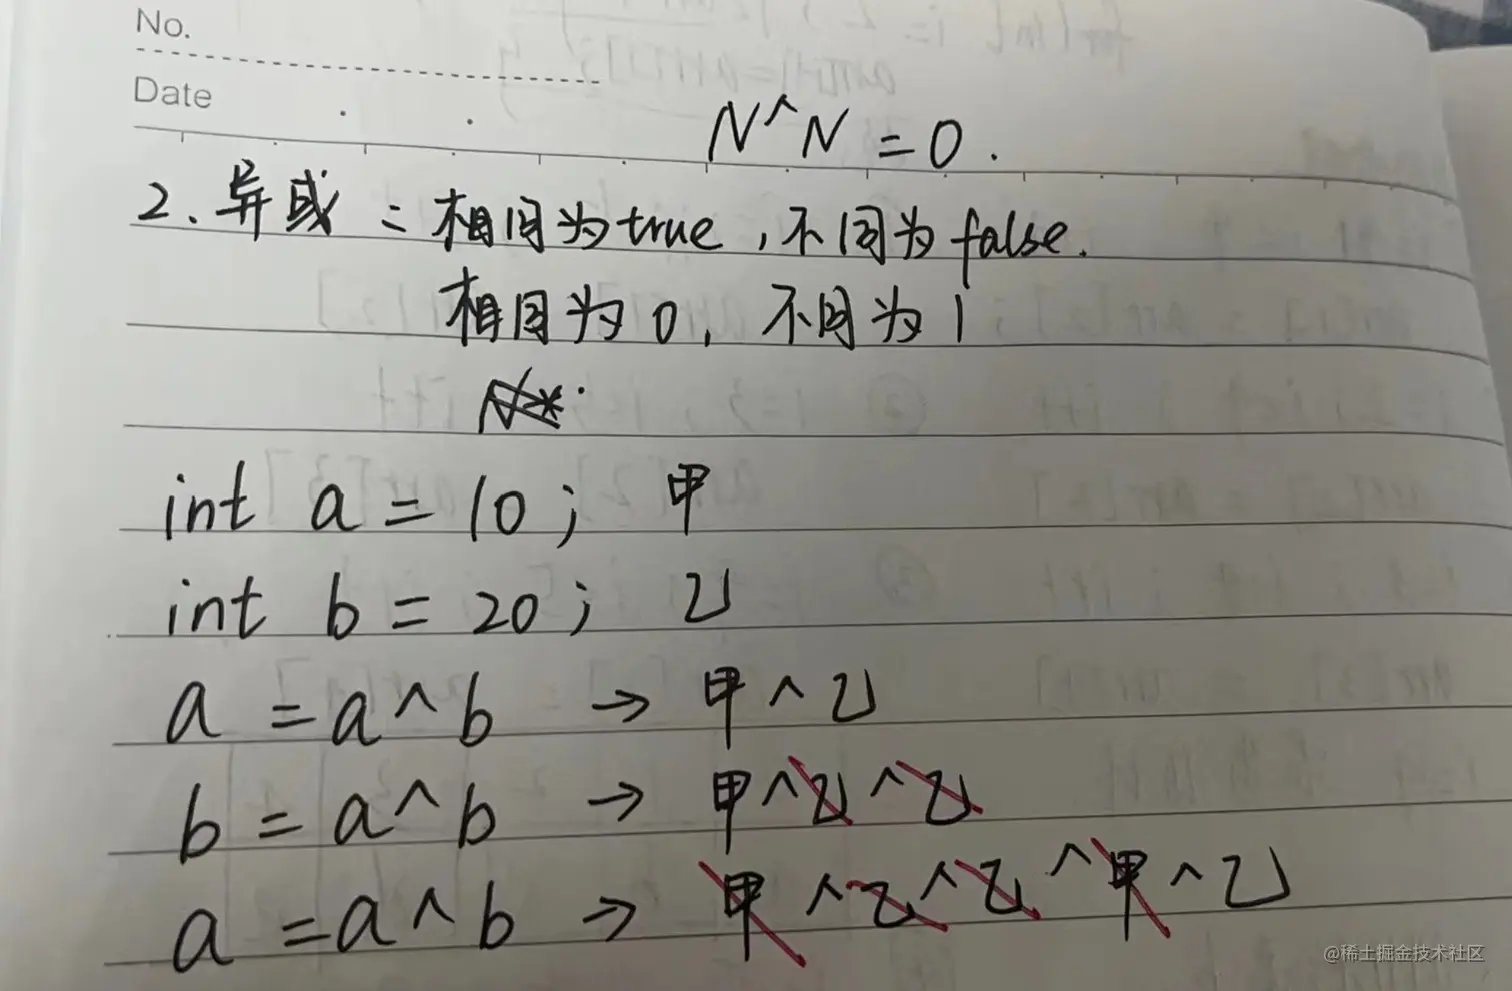 No.
Date
N^N=0.
2、异或：相同为true，不同为false.
相同为0，不同为1
int a = 10; 甲
int b = 20; 乙
a = a^b → 甲^乙
b = a^b → 甲^乙^乙
a = a^b → 甲^乙^乙^甲^乙
@稀土掘金技术社区